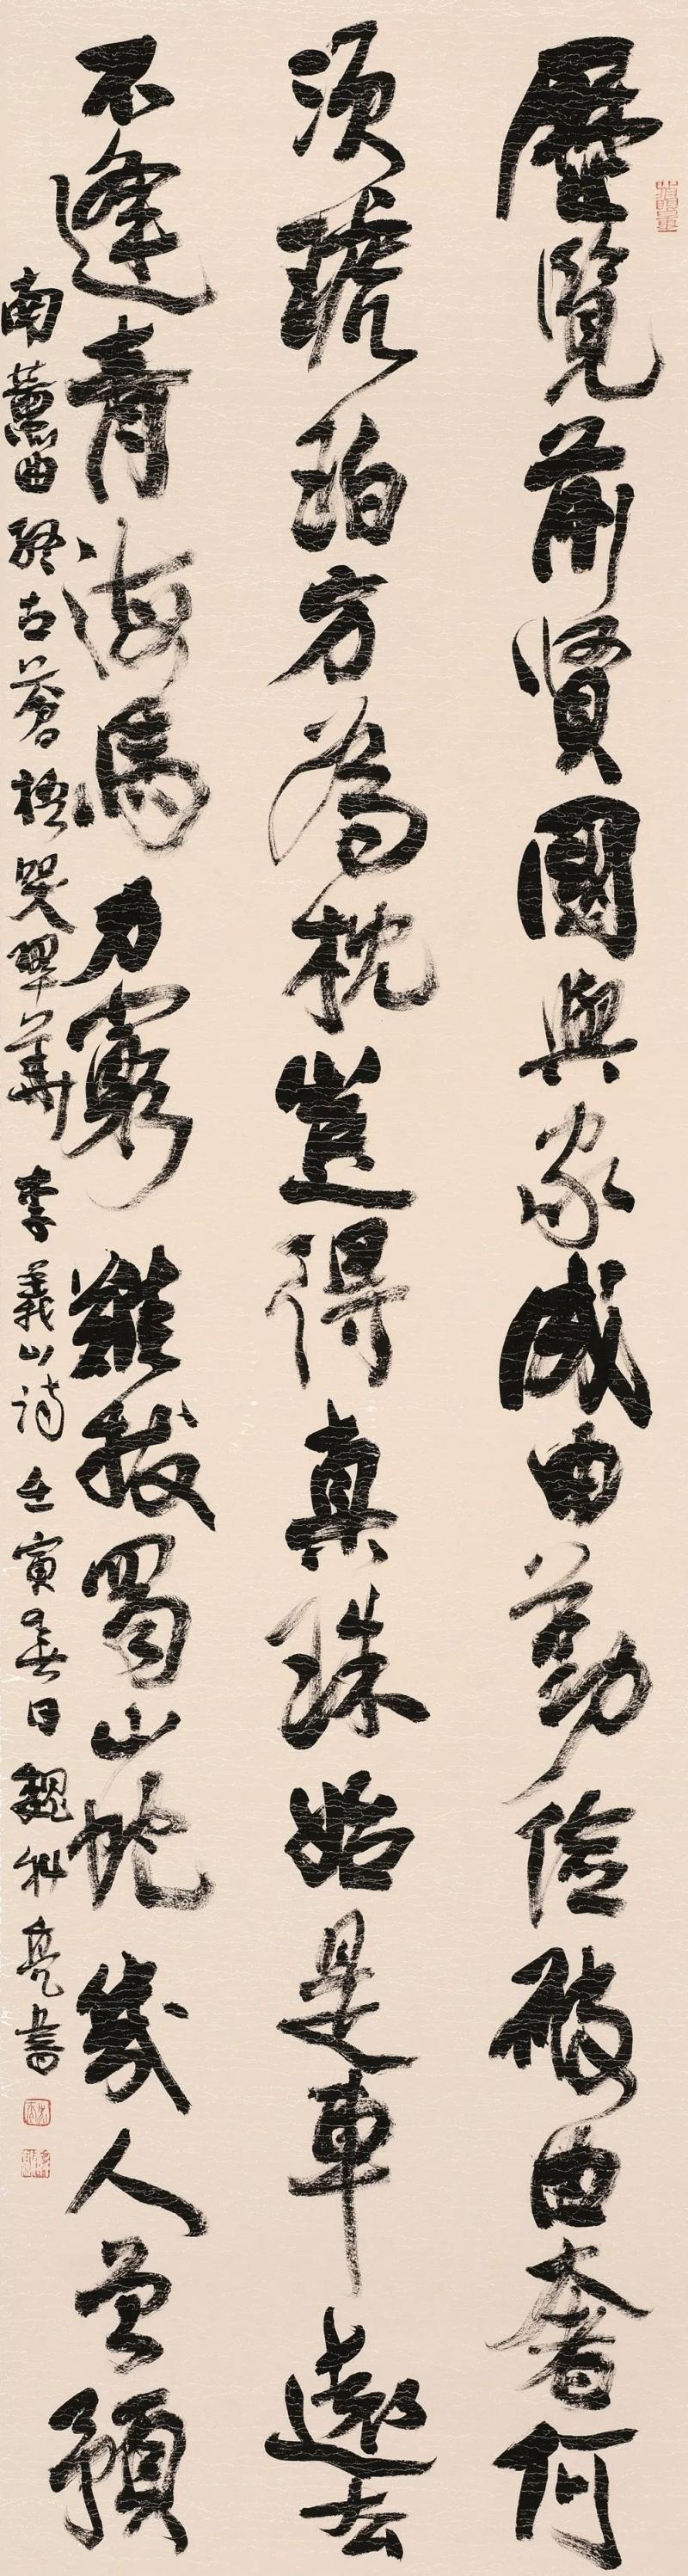 歷覽前賢國與家成由勤儉破由奢何
須琥珀方為枕豈得真珠始是車遠去
不逢青海馬力窮難拔蜀山蛇幾人曾預
南薰曲終古蒼梧哭翠華 李義山詩 壬寅春日魏科亮書